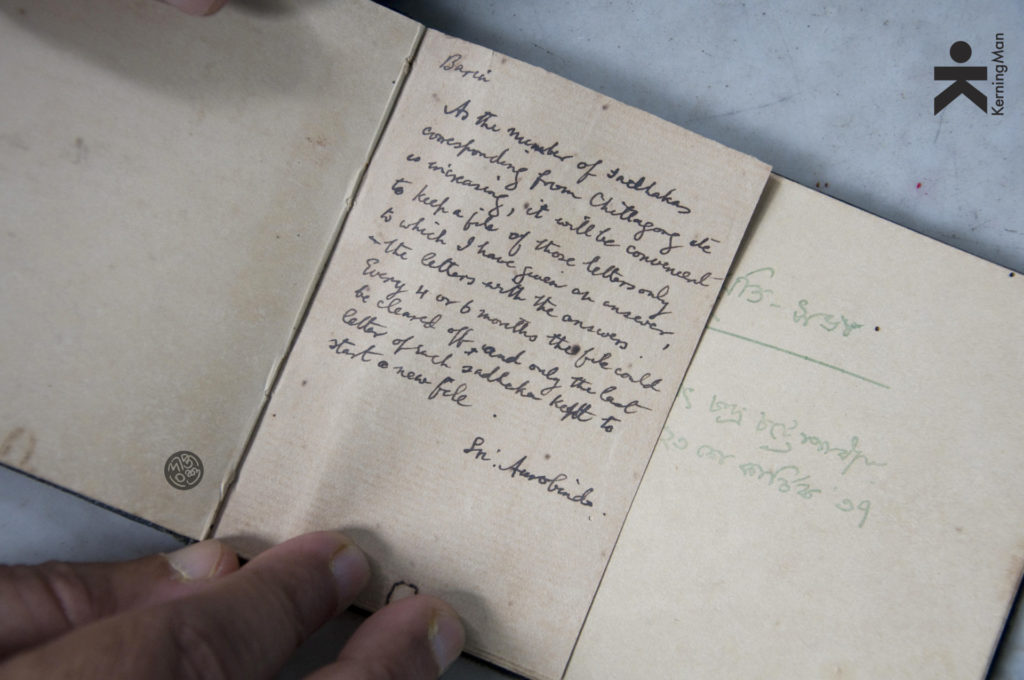 Barin
As the number of sadhakas
corresponding from Chittagong etc
is increasing, it will be convenient
to keep a file of those letters only
to which I have given an answer,
the letters with the answers.
Every 4 or 6 months the file could
be cleared off, and only the last
letter of each sadhaka kept to
start a new file.
Sri Aurobindo.
KerningMan